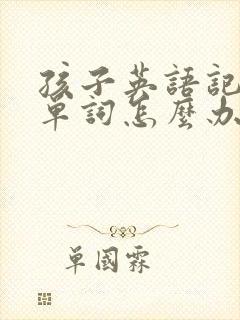 孩子英語記
單詞怎麼办
單國霖